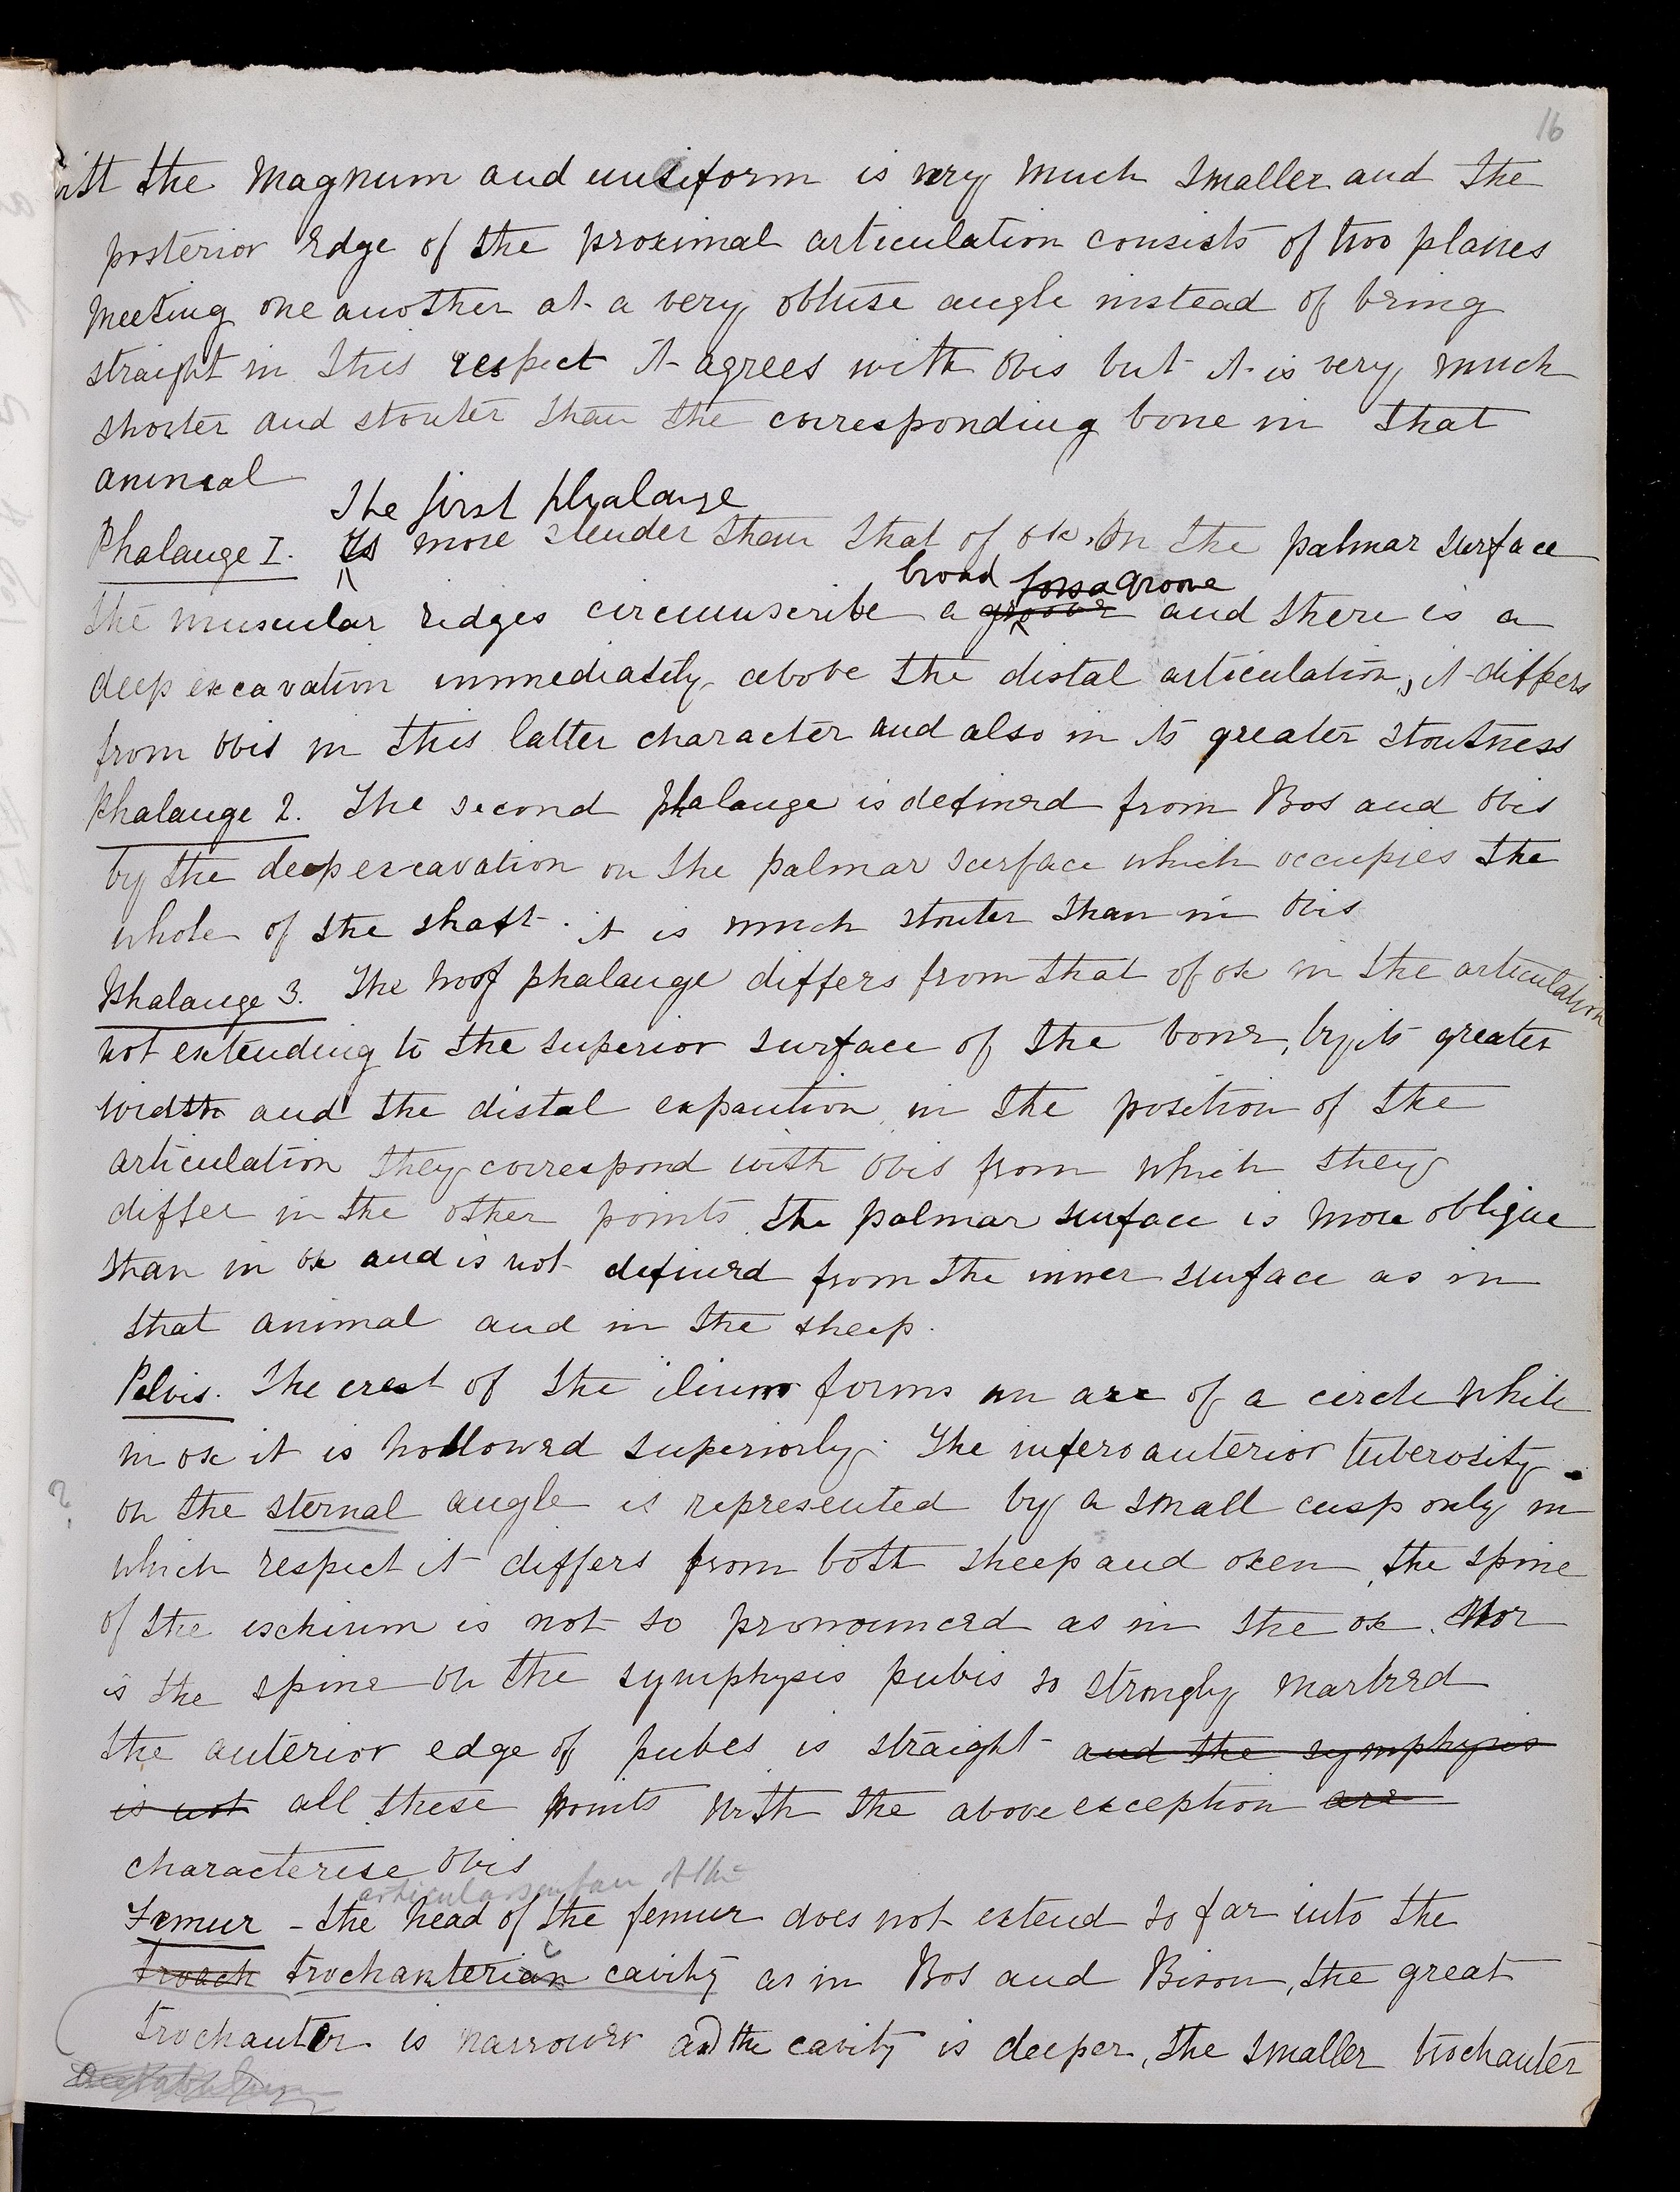 16
with the magnum and unciform is very much smaller and the
posterior edge of the proximal articulation consists of two planes
meeting one another at a very obtuse angle instead of being
straight in this respect it agrees with Ovis but it is very much
shorter and stouter than the corresponding bone in that
animal
The first phalange
Phalange I. Is more slender than that of ox. On the palmar surface
broad fossa groove
the muscular ridges circumscribe a groove and there is a
deep excavation immediately above the distal articulation, it differs
from Ovis in this latter character and also in its greater stoutness
Phalange 2. The second phalange is defined from Bos and Ovis
by the deep excavation on the palmar surface which occupies the
whole of the shaft. it is much stouter than in Ovis
Phalange 3. The hoof phalange differs from that of ox in the articulation
not extending to the superior surface of the bone, by its greater
width and the distal expantion, in the position of the
articulation they correspond with Ovis from which they
differ in the other points. the palmar surface is more oblique
than in ox and is not defined from the inner surface as in
that animal and in the sheep.
Pelvis. The crest of the ilium forms an arc of a circle while
in ox it is hollowed superiorly. The infero anterior tuberosity
? on the sternal angle is represented by a small cusp only in
which respect it differs from both sheep and oxen, the spine
of the ischium is not so pronounced as in the ox. Nor
is the spine on the symphysis pubis so strongly marked
the anterior edge of pubes is straight and the symphysis
is not all these points with the above exception are
characterise Ovis
articular surface of the
Femur - the head of the femur does not extend so far into the
troach trochanterian cavity as in Bos and Bison, the great
trochanter is narrower and the cavity is deeper, the smaller trochanter